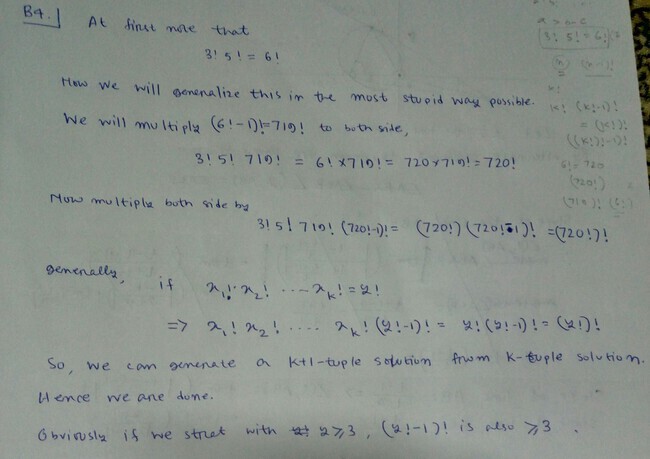 B4.
At first note that
3! 5! = 6!
Now we will generalize this in the most stupid way possible.
We will multiply (6!-1)! = 719! to both side,
3! 5! 719! = 6! × 719! = 720 × 719! = 720!
Now multiple both side by
3! 5! 719! (720!-1)! = (720!) (720!-1)! = (720!)!
Generally, if x₁! x₂! .... xₖ! = y!
=> x₁! x₂! .... xₖ! (y!-1)! = y! (y!-1)! = (y!)!
So, we can generate a k+1-tuple solution from k-tuple solution.
Hence we are done.
Obviously if we strat with y ⩾ 3, (y!-1)! is also ⩾ 3.
3! 5! = 6!
k! (k!-1)!
= (k!)!
((k!)!-1)!
6! = 720
(720!)